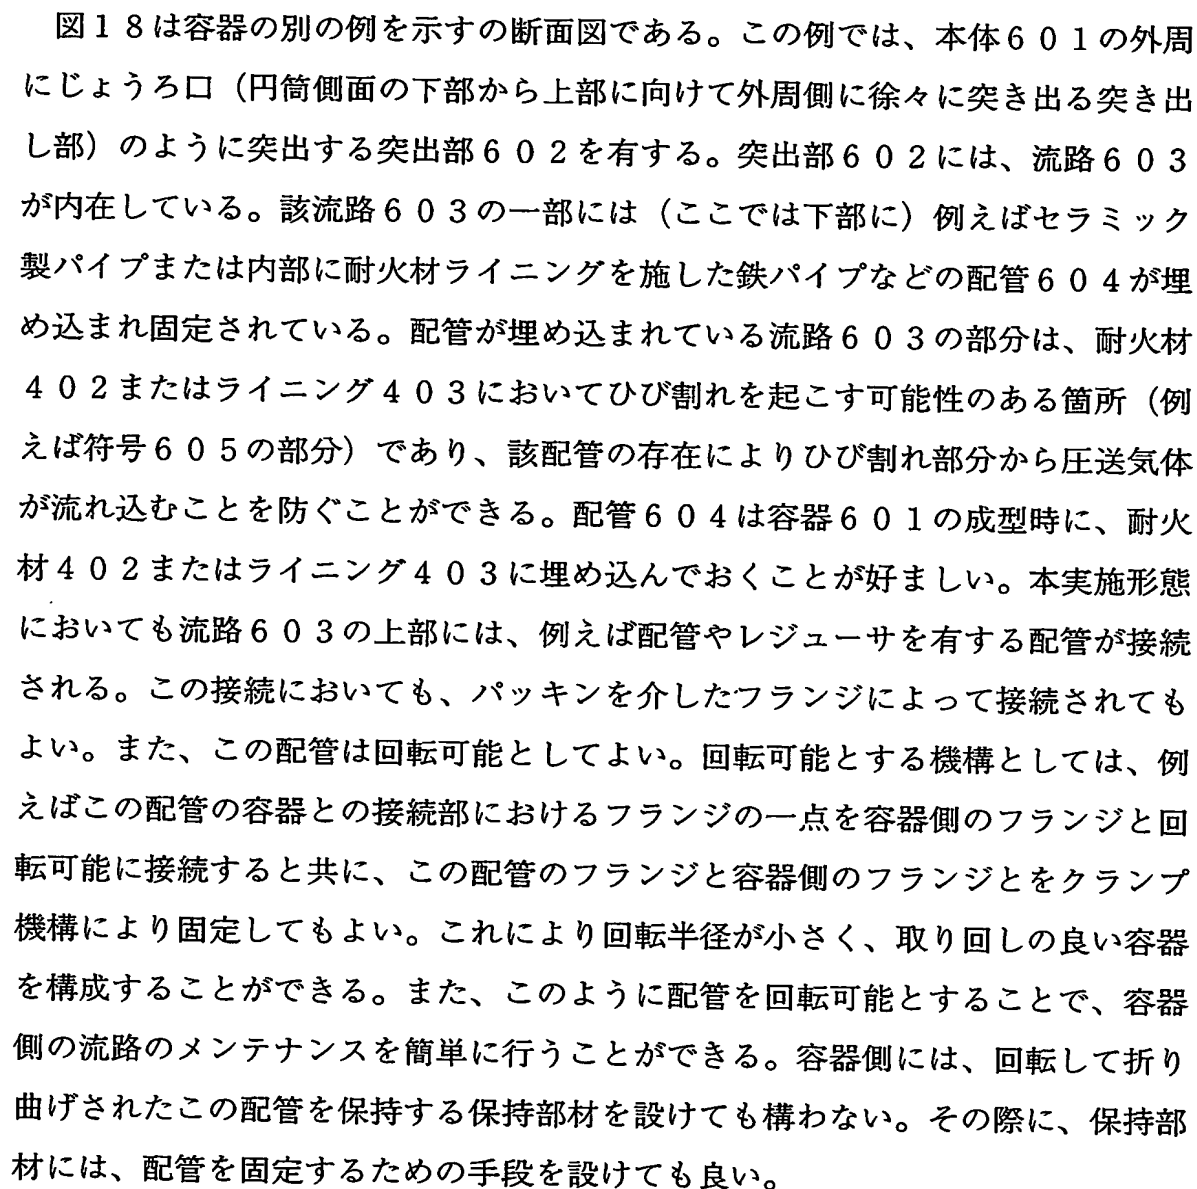 図１８は容器の別の例を示すの断面図である。この例では、本体６０１の外周
にじょうろ口（円筒側面の下部から上部に向けて外周側に徐々に突き出る突き出
し部）のように突出する突出部６０２を有する。突出部６０２には、流路６０３
が内在している。該流路６０３の一部には（ここでは下部に）例えばセラミック
製パイプまたは内部に耐火材ライニングを施した鉄パイプなどの配管６０４が埋
め込まれ固定されている。配管が埋め込まれている流路６０３の部分は、耐火材
４０２またはライニング４０３においてひび割れを起こす可能性のある箇所（例
えば符号６０５の部分）であり、該配管の存在によりひび割れ部分から圧送気体
が流れ込むことを防ぐことができる。配管６０４は容器６０１の成型時に、耐火
材４０２またはライニング４０３に埋め込んでおくことが好ましい。本実施形態
においても流路６０３の上部には、例えば配管やレジューサを有する配管が接続
される。この接続においても、パッキンを介したフランジによって接続されても
よい。また、この配管は回転可能としてよい。回転可能とする機構としては、例
えばこの配管の容器との接続部におけるフランジの一点を容器側のフランジと回
転可能に接続すると共に、この配管のフランジと容器側のフランジとをクランプ
機構により固定してもよい。これにより回転半径が小さく、取り回しの良い容器
を構成することができる。また、このように配管を回転可能とすることで、容器
側の流路のメンテナンスを簡単に行うことができる。容器側には、回転して折り
曲げされたこの配管を保持する保持部材を設けても構わない。その際に、保持部
材には、配管を固定するための手段を設けても良い。